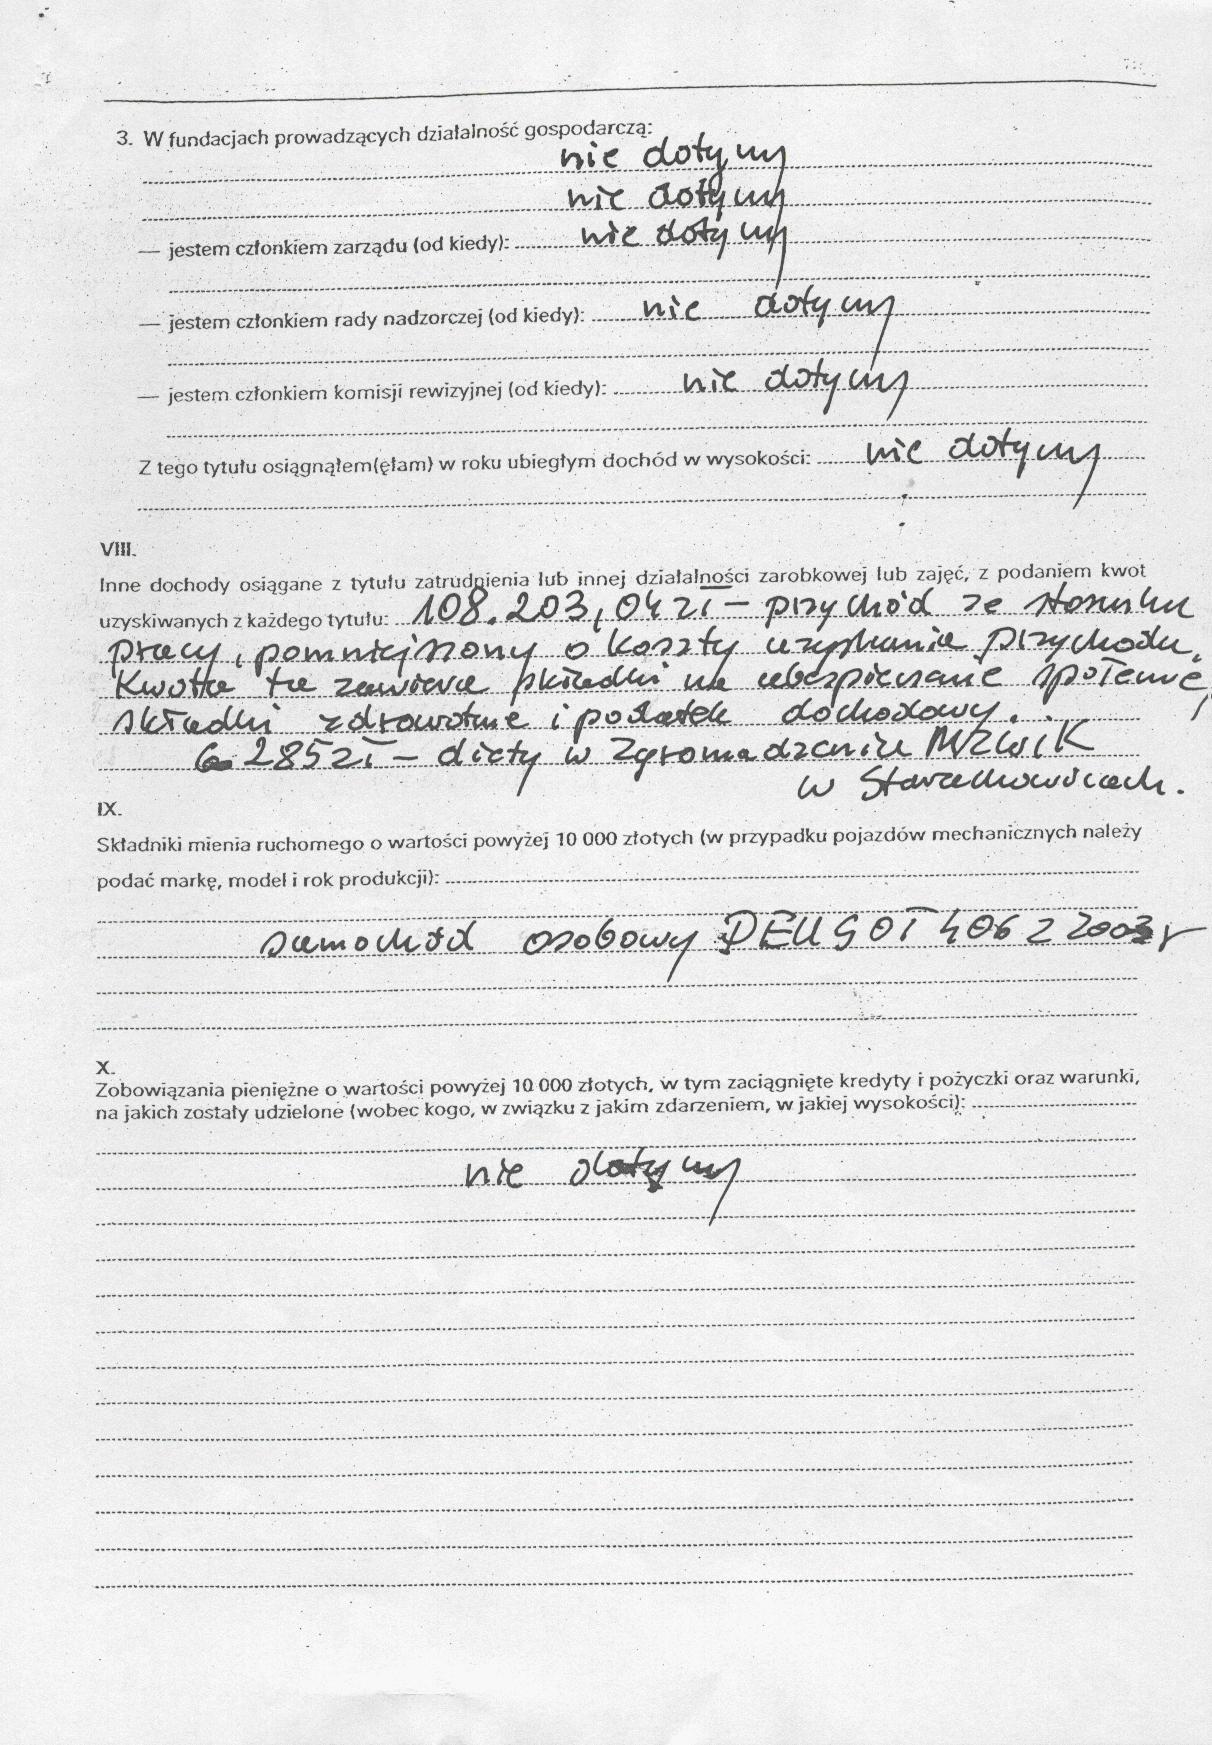 3. W fundacjach prowadzących działalność gospodarczą:
nie dotyczy
nie dotyczy
— jestem członkiem zarządu (od kiedy): nie dotyczy
— jestem członkiem rady nadzorczej (od kiedy): nie dotyczy
— jestem członkiem komisji rewizyjnej (od kiedy): nie dotyczy
Z tego tytułu osiągnąłem(ęłam) w roku ubiegłym dochód w wysokości: nie dotyczy
VIII.
Inne dochody osiągane z tytułu zatrudnienia lub innej działalności zarobkowej lub zajęć, z podaniem kwot
uzyskiwanych z każdego tytułu: 108.203,04 zł – przychód ze stosunku
pracy, pomniejszony o koszty uzyskania przychodu.
Kwota ta zawiera składki na ubezpieczenie społeczne,
składki zdrowotne i podatek dochodowy.
6 285 zł – diety w Zgromadzeniu MZWiK
w Starachowicach.
IX.
Składniki mienia ruchomego o wartości powyżej 10 000 złotych (w przypadku pojazdów mechanicznych należy
podać markę, model i rok produkcji):
samochód osobowy PEUGOT 406 z 2003 r
X.
Zobowiązania pieniężne o wartości powyżej 10 000 złotych, w tym zaciągnięte kredyty i pożyczki oraz warunki,
na jakich zostały udzielone (wobec kogo, w związku z jakim zdarzeniem, w jakiej wysokości):
nie dotyczy